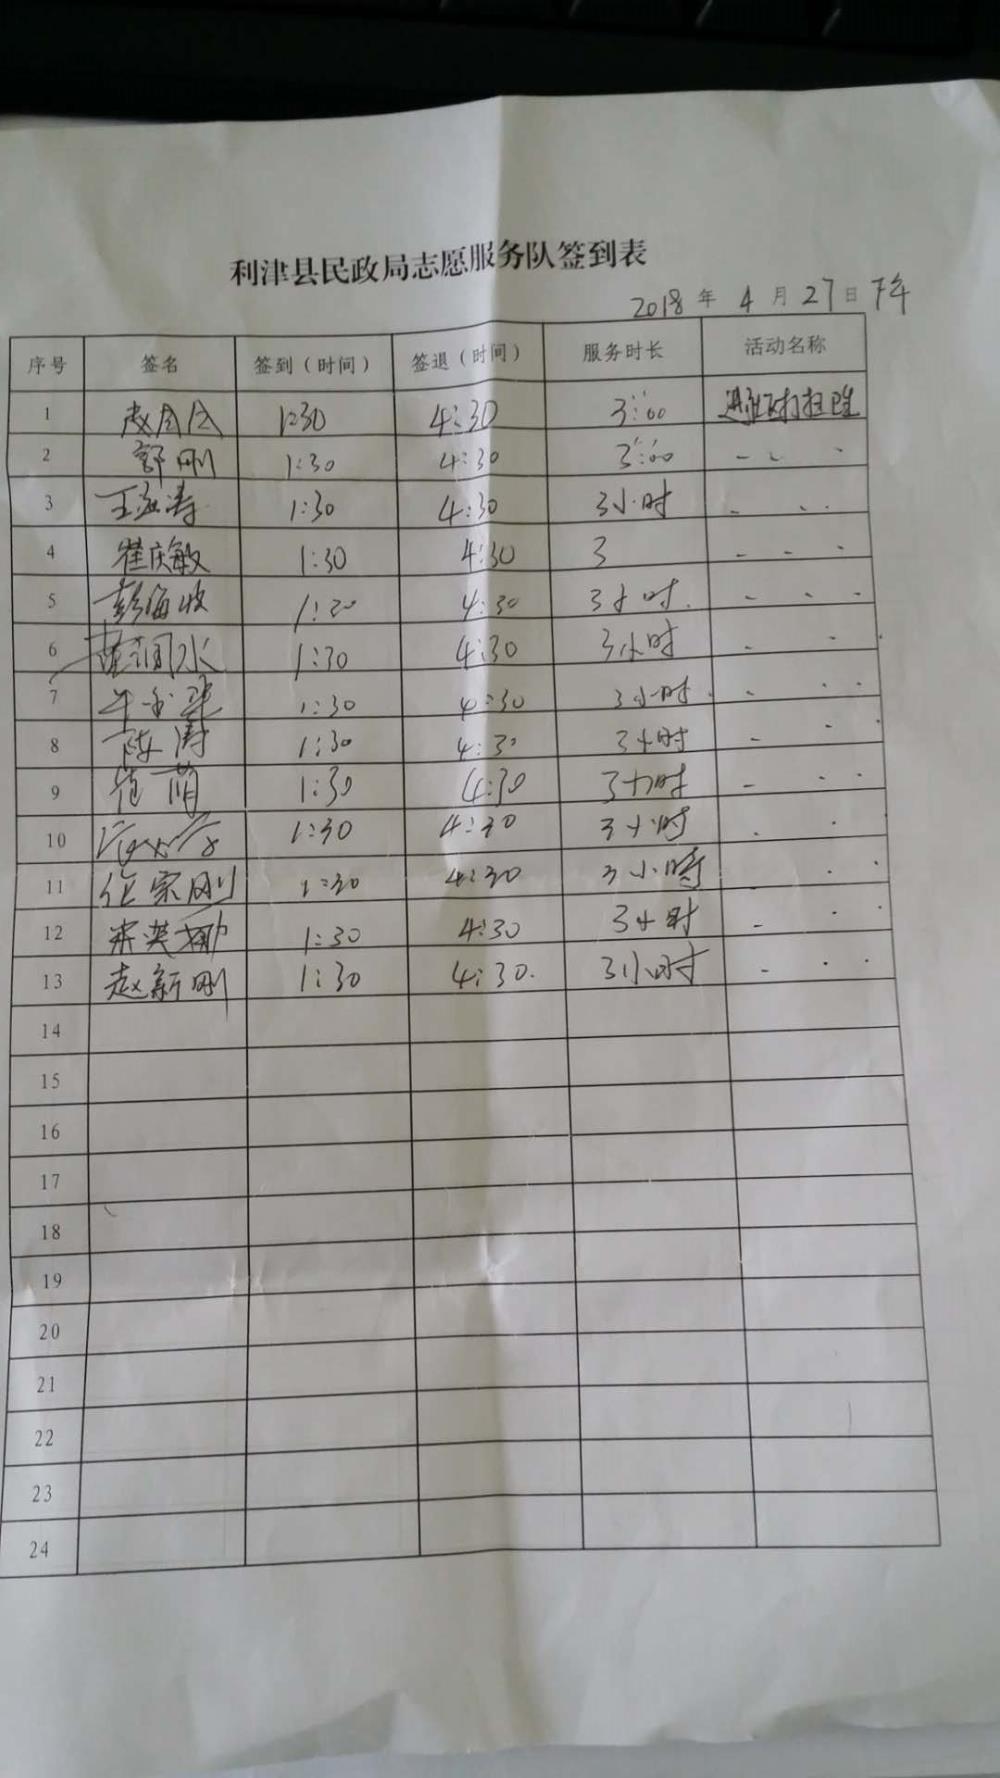 利津县民政局志愿服务队签到表
2018 年 4 月 27 日 下午
序号 签名 签到（时间） 签退（时间） 服务时长 活动名称
1 1:30 4:30 3:00
2 郭刚 1:30 4:30 3:00
3 1:30 4:30 3小时
4 崔庆敏 1:30 4:30 3
5 彭海波 1:30 4:30 3小时.
6 1:30 4:30 3小时
7 1:30 4:30 3小时.
8 陈涛 1:30 4:30 3小时
9 范萌 1:30 4:30 3小时
10 1:30 4:30 3小时
11 任宗刚 1:30 4:30 3小時
12 1:30 4:30 3小时
13 赵新刚 1:30 4:30. 3小时
14
15
16
17
18
19
20
21
22
23
24